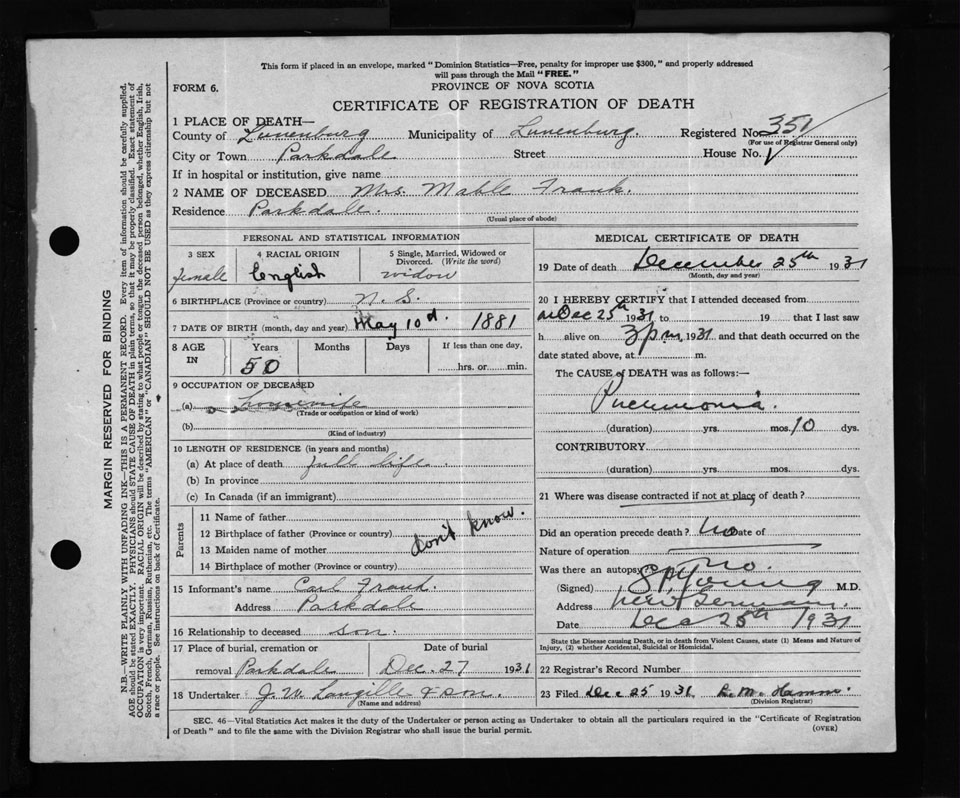 This form if placed in an envelope, marked "Dominion Statistics—Free, penalty for improper use $300," and properly addressed
will pass through the Mail "FREE."
FORM 6.
PROVINCE OF NOVA SCOTIA
CERTIFICATE OF REGISTRATION OF DEATH
1 PLACE OF DEATH—
County of Lunenburg Municipality of Lunenburg. Registered No. 351
(For use of Registrar General only)
City or Town Parkdale Street House No.
If in hospital or institution, give name
2 NAME OF DECEASED Mrs. Mable Frank.
Residence Parkdale.
(Usual place of abode)
PERSONAL AND STATISTICAL INFORMATION
3 SEX female
4 RACIAL ORIGIN English
5 Single, Married, Widowed or Divorced. (Write the word) widow
6 BIRTHPLACE (Province or country) N. S.
7 DATE OF BIRTH (month, day and year) May 10d. 1881
8 AGE IN Years Months Days If less than one day,
50 hrs. or min.
9 OCCUPATION OF DECEASED
(a) housewife
(Trade or occupation or kind of work)
(b)
(Kind of industry)
10 LENGTH OF RESIDENCE (in years and months)
(a) At place of death full life
(b) In province
(c) In Canada (if an immigrant)
Parents
11 Name of father
12 Birthplace of father (Province or country)
don't know.
13 Maiden name of mother
14 Birthplace of mother (Province or Country)
15 Informant's name Carl Frank.
Address Parkdale
16 Relationship to deceased son.
17 Place of burial, cremation or removal Parkdale
Date of burial Dec. 27 1931
18 Undertaker J. W. Langille & son.
(Name and address)
MEDICAL CERTIFICATE OF DEATH
19 Date of death December 25th 1931
(Month, day and year)
20 I HEREBY CERTIFY that I attended deceased from
Dec 25th 1931 to 19 that I last saw
h alive on 3 p.m. 1931 and that death occurred on the
date stated above, at m.
The CAUSE of DEATH was as follows:—
Pneumonia.
(duration) yrs. mos. 10 dys.
CONTRIBUTORY
(duration) yrs. mos. dys.
21 Where was disease contracted if not at place of death?
Did an operation precede death? no Date of
Nature of operation
Was there an autopsy? no.
(Signed) Young M.D.
Address New Germany.
Date Dec 25th 1931
State the Disease causing Death, or in death from Violent Causes, state (1) Means and Nature of
Injury, (2) whether Accidental, Suicidal or Homicidal.
22 Registrar's Record Number
23 Filed Dec 25 1931
(Division Registrar)
SEC. 46—Vital Statistics Act makes it the duty of the Undertaker or person acting as Undertaker to obtain all the particulars required in the "Certificate of Registration
of Death" and to file the same with the Division Registrar who shall issue the burial permit.
(OVER)
MARGIN RESERVED FOR BINDING
N.B.—WRITE PLAINLY WITH UNFADING INK—THIS IS A PERMANENT RECORD. Every item of information should be carefully supplied.
AGE should be stated EXACTLY. PHYSICIANS should STATE CAUSE OF DEATH in plain terms, so that it may be properly classified. Exact statement of
OCCUPATION is very important. RACIAL ORIGIN will be described by stating to what people or tongue the deceased person belonged, whether English, Irish,
Scotch, French, German, Russian, Ruthenian, etc. The terms "AMERICAN" or "CANADIAN" SHOULD NOT BE USED as they express citizenship but not
a race or people. See instructions on back of Certificate.